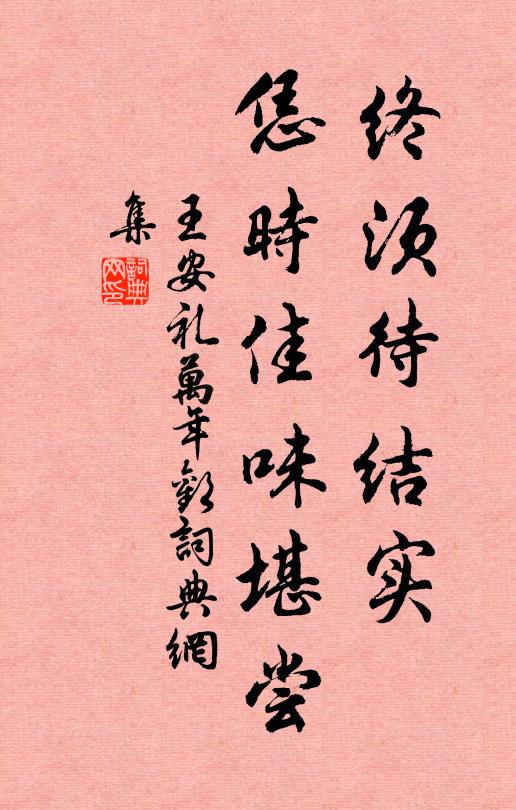 终须待结实
恁時佳味堪尝
王安礼萬年歡詞典網
集
詞典网印